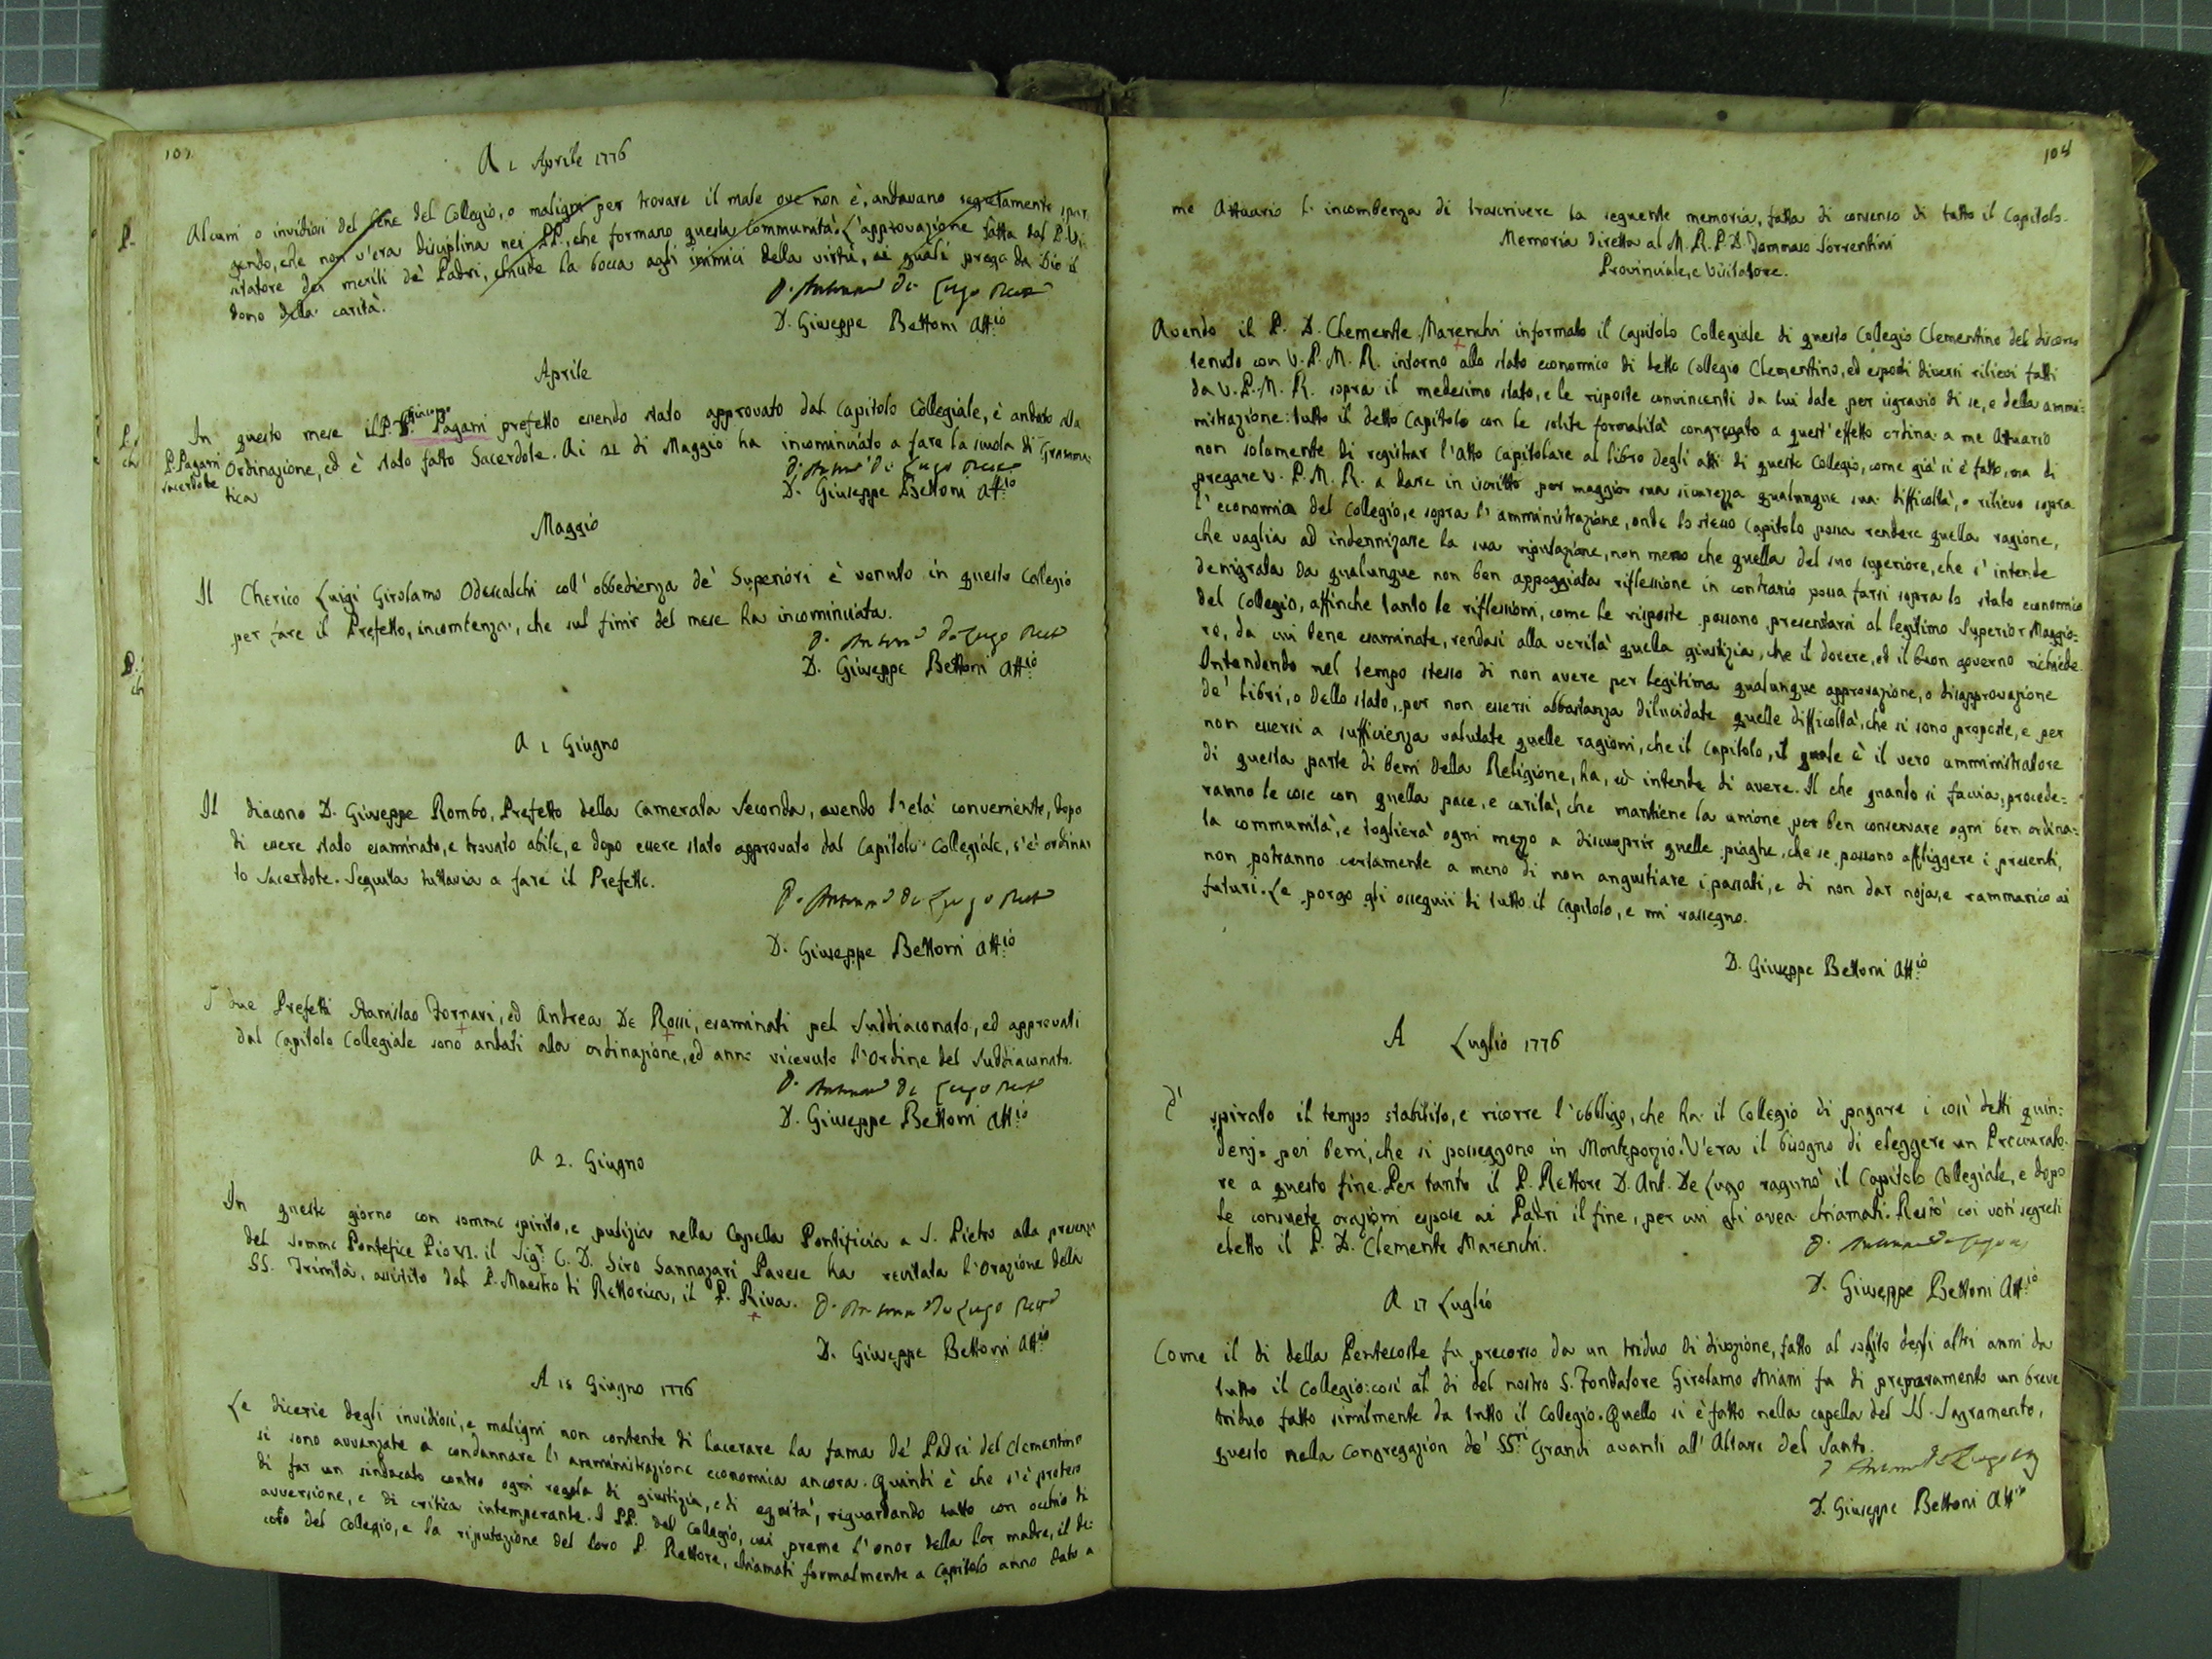 107.
A 1 Aprile 1776
Alcuni o invidiosi del bene del Collegio, o maligni per trovare il male ove non è, andavano segretamente spar
gendo, che non v'era disciplina nei PP., che formano questa Communità. L'approvazione fatta dal P. Vi
sitatore dei meriti de' Padri, chiude la bocca agli inimici della virtù, ai quali prego da Dio il
dono della carità.
D. Antonio De Lugo Rett
D. Giuseppe Bettoni Att:io
Aprile
In questo mese il P. D. Giacomo Pagani prefetto essendo stato approvato dal Capitolo Collegiale, è andato alla
P. Pagani
sacerdote
Ordinazione, ed è stato fatto Sacerdote. Ai 21 di Maggio ha incominciato a fare la scuola di Gramma:
tica
D. Antonio De Lugo Rett
D. Giuseppe Bettoni Att:io
Maggio
Il Cherico Luigi Girolamo Odescalchi coll'obbedienza de' Superiori è venuto in questo Collegio
per fare il Prefetto, incombenza, che sul finir del mese ha incominciata.
D. Antonio De Lugo Rett
D. Giuseppe Bettoni Att:io
A 1 Giugno
Il diacono D. Giuseppe Rombo, Prefetto della Camerata Seconda, avendo l'età conveniente, dopo
di essere stato esaminato, e trovato abile, e dopo essere stato approvato dal Capitolo Collegiale, s'è ordina
to Sacerdote. Seguita tuttavia a fare il Prefetto.
D. Antonio De Lugo Rett
D. Giuseppe Bettoni Att:io
I due Prefetti Stanislao Fornari, ed Andrea De Rossi, esaminati pel Suddiaconato, ed approvati
dal Capitolo Collegiale sono andati alla ordinazione, ed anno ricevuto l'Ordine del Suddiaconato.
D. Antonio De Lugo Rett
D. Giuseppe Bettoni Att:io
A 2. Giugno
In questo giorno con sommo spirito, e pulizia nella Capella Pontificia a S. Pietro alla presenza
del Sommo Pontefice Pio VI. il Sigr. C. D. Siro Sannazari Pavese ha recitata l'Orazione della
SS. Trinità, assistito dal P. Maestro di Rettorica, il P. Riva.
D. Antonio De Lugo Rett
D. Giuseppe Bettoni Att:io
A 15 Giugno 1776
Le dicerie degli invidiosi, e maligni non contente di lacerare la fama de' Padri del Clementino
si sono avvanzate a condannare l'amministrazione economica ancora. Quindi è che s'è preteso
di far un sindacato contro ogni regola di giustizia, e di equità, riguardando tutto con occhio di
avversione, e di critica intemperante. I PP. del Collegio, cui preme l'onor della lor madre, il de:
coro del Collegio, e la riputazione del loro P. Rettore, chiamati formalmente a Capitolo anno dato a
108
me Attuario l'incombenza di trascrivere la seguente memoria, fatta di consenso di tutto il Capitolo.
Memoria diretta al M. R. P. D. Tommaso Sorrentini
Provinciale, e Visitatore.
Avendo il P. D. Clemente Marenchi informato il Capitolo Collegiale di questo Collegio Clementino del discorso
tenuto con V. P. M. R. intorno allo stato economico di detto Collegio Clementino, ed esposti diversi rilievi fatti
da V. P. M. R. sopra il medesimo stato, e le risposte convincenti da lui date per isgravio di se, e della ammi:
nistrazione: tutto il detto Capitolo con le solite formalità congregato a quest'effetto ordina a me Attuario
non solamente di registrar l'atto Capitolare al libro degli atti di questo Collegio, come già si è fatto, ma di
pregare V. P. M. R. a dare in iscritto per maggior sua sicurezza qualunque sua difficoltà, o rilievo sopra
l'economia del Collegio, e sopra l'amministrazione, onde lo stesso Capitolo possa rendere quella ragione,
che vaglia ad indennizare la sua riputazione, non meno che quella del suo superiore, che s'intende
denigrata da qualunque non ben appoggiata riflessione in contrario possa farsi sopra lo stato economico
del Collegio, affinche tanto le riflessioni, come le risposte possano presentarsi al legitimo Superior Maggio:
re, da cui bene esaminate, rendasi alla verità quella giustizia, che il dovere, ed il buon governo richiede.
Intendendo nel tempo stesso di non avere per legitima qualunque approvazione, o disapprovazione
de' libri, o dello stato, per non essersi abbastanza dilucidate quelle difficoltà, che si sono proposte, e per
non essersi a sufficienza valutate quelle ragioni, che il Capitolo, il quale è il vero amministratore
di questa parte di beni della Religione, ha, ed intende di avere. Il che quando si faccia, procede:
ranno le cose con quella pace, e carità, che mantiene la unione per ben conservare ogni ben ordina:
ta communità, e toglierà ogni mezzo a discuoprir quelle piaghe, che se possono affliggere i presenti,
non potranno certamente a meno di non angustiare i passati, e di non dar noja, e rammarico ai
futuri. Le porgo gli ossequii di tutto il Capitolo, e mi rassegno.
D. Giuseppe Bettoni Att:io
A Luglio 1776
E' spirato il tempo stabilito, e ricorre l'obbligo, che ha il Collegio di pagare i così detti quin:
denj pei beni, che si posseggono in Monteporzio. V'era il bisogno di eleggere un Procurato:
re a questo fine. Per tanto il P. Rettore D. Ant. De Lugo ragunò il Capitolo Collegiale, e dopo
le consuete orazioni espose ai Padri il fine, per cui gli avea chiamati. Restò coi voti segreti
eletto il P. D. Clemente Marenchi.
D. Antonio De Lugo
D. Giuseppe Bettoni Att:io
A 17 Luglio
Come il dì della Pentecoste fu precorso da un triduo di divozione, fatto al solito degli altri anni da
tutto il Collegio: così al dì del nostro S. Fondatore Girolamo Miani fu di preparamento un breve
triduo fatto similmente da tutto il Collegio. Quello si è fatto nella capella del SS. Sagramento,
questo nella Congregazion de' SS.ri Grandi avanti all'Altare del Santo.
D. Antonio De Lugo
D. Giuseppe Bettoni Att:io